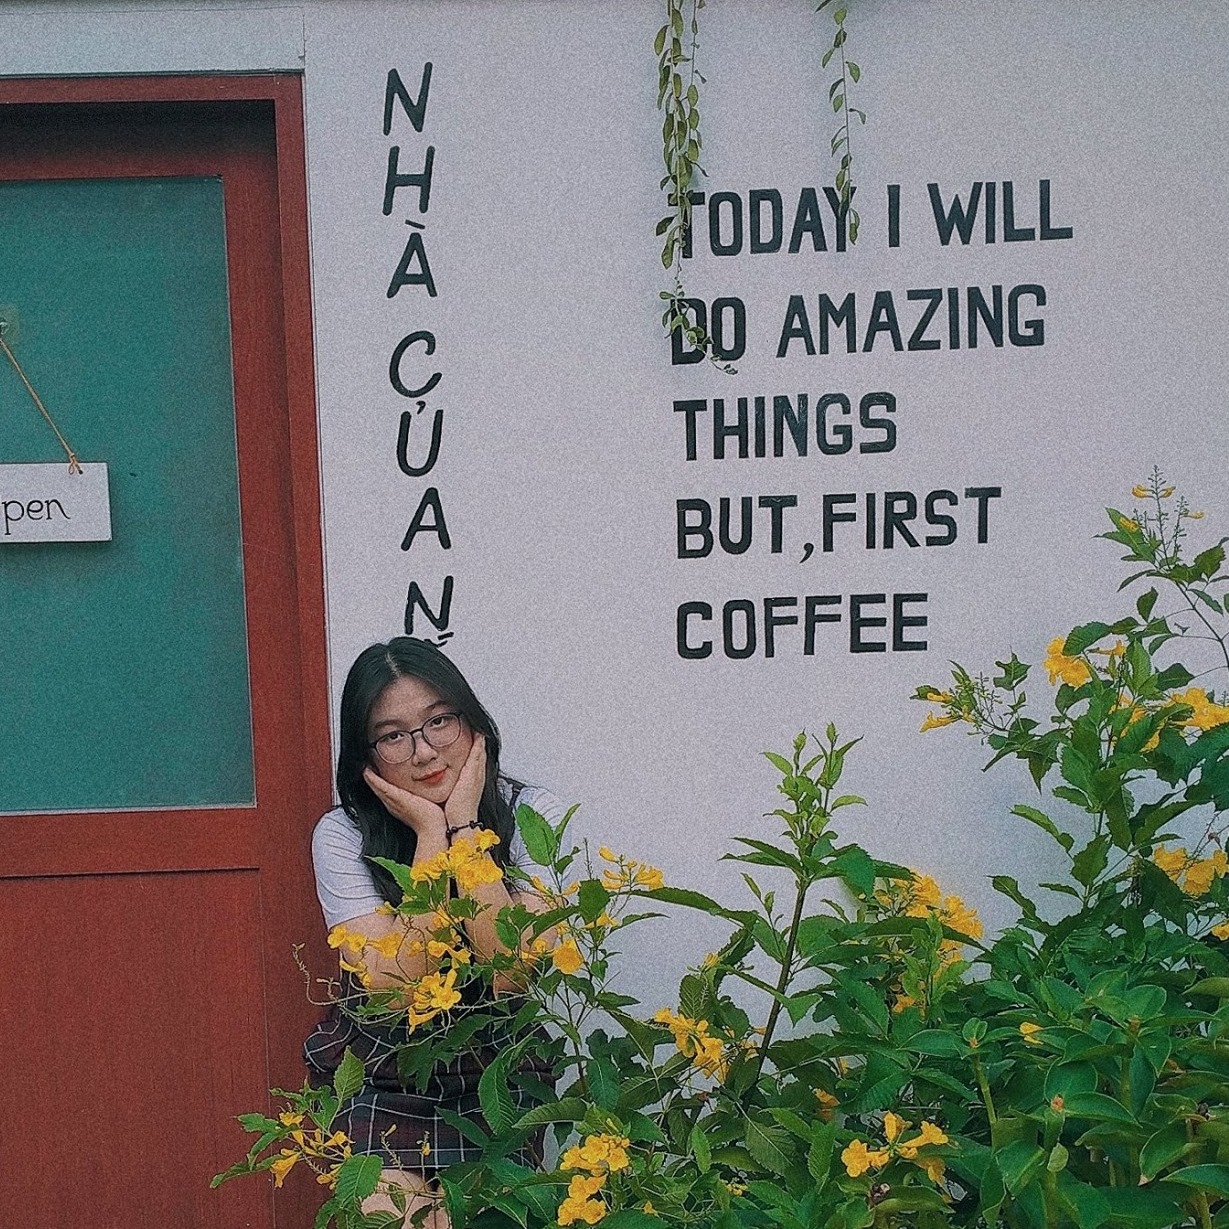 pen
NHÀ CỦA N
TODAY I WILL
DO AMAZING
THINGS
BUT, FIRST
COFFEE